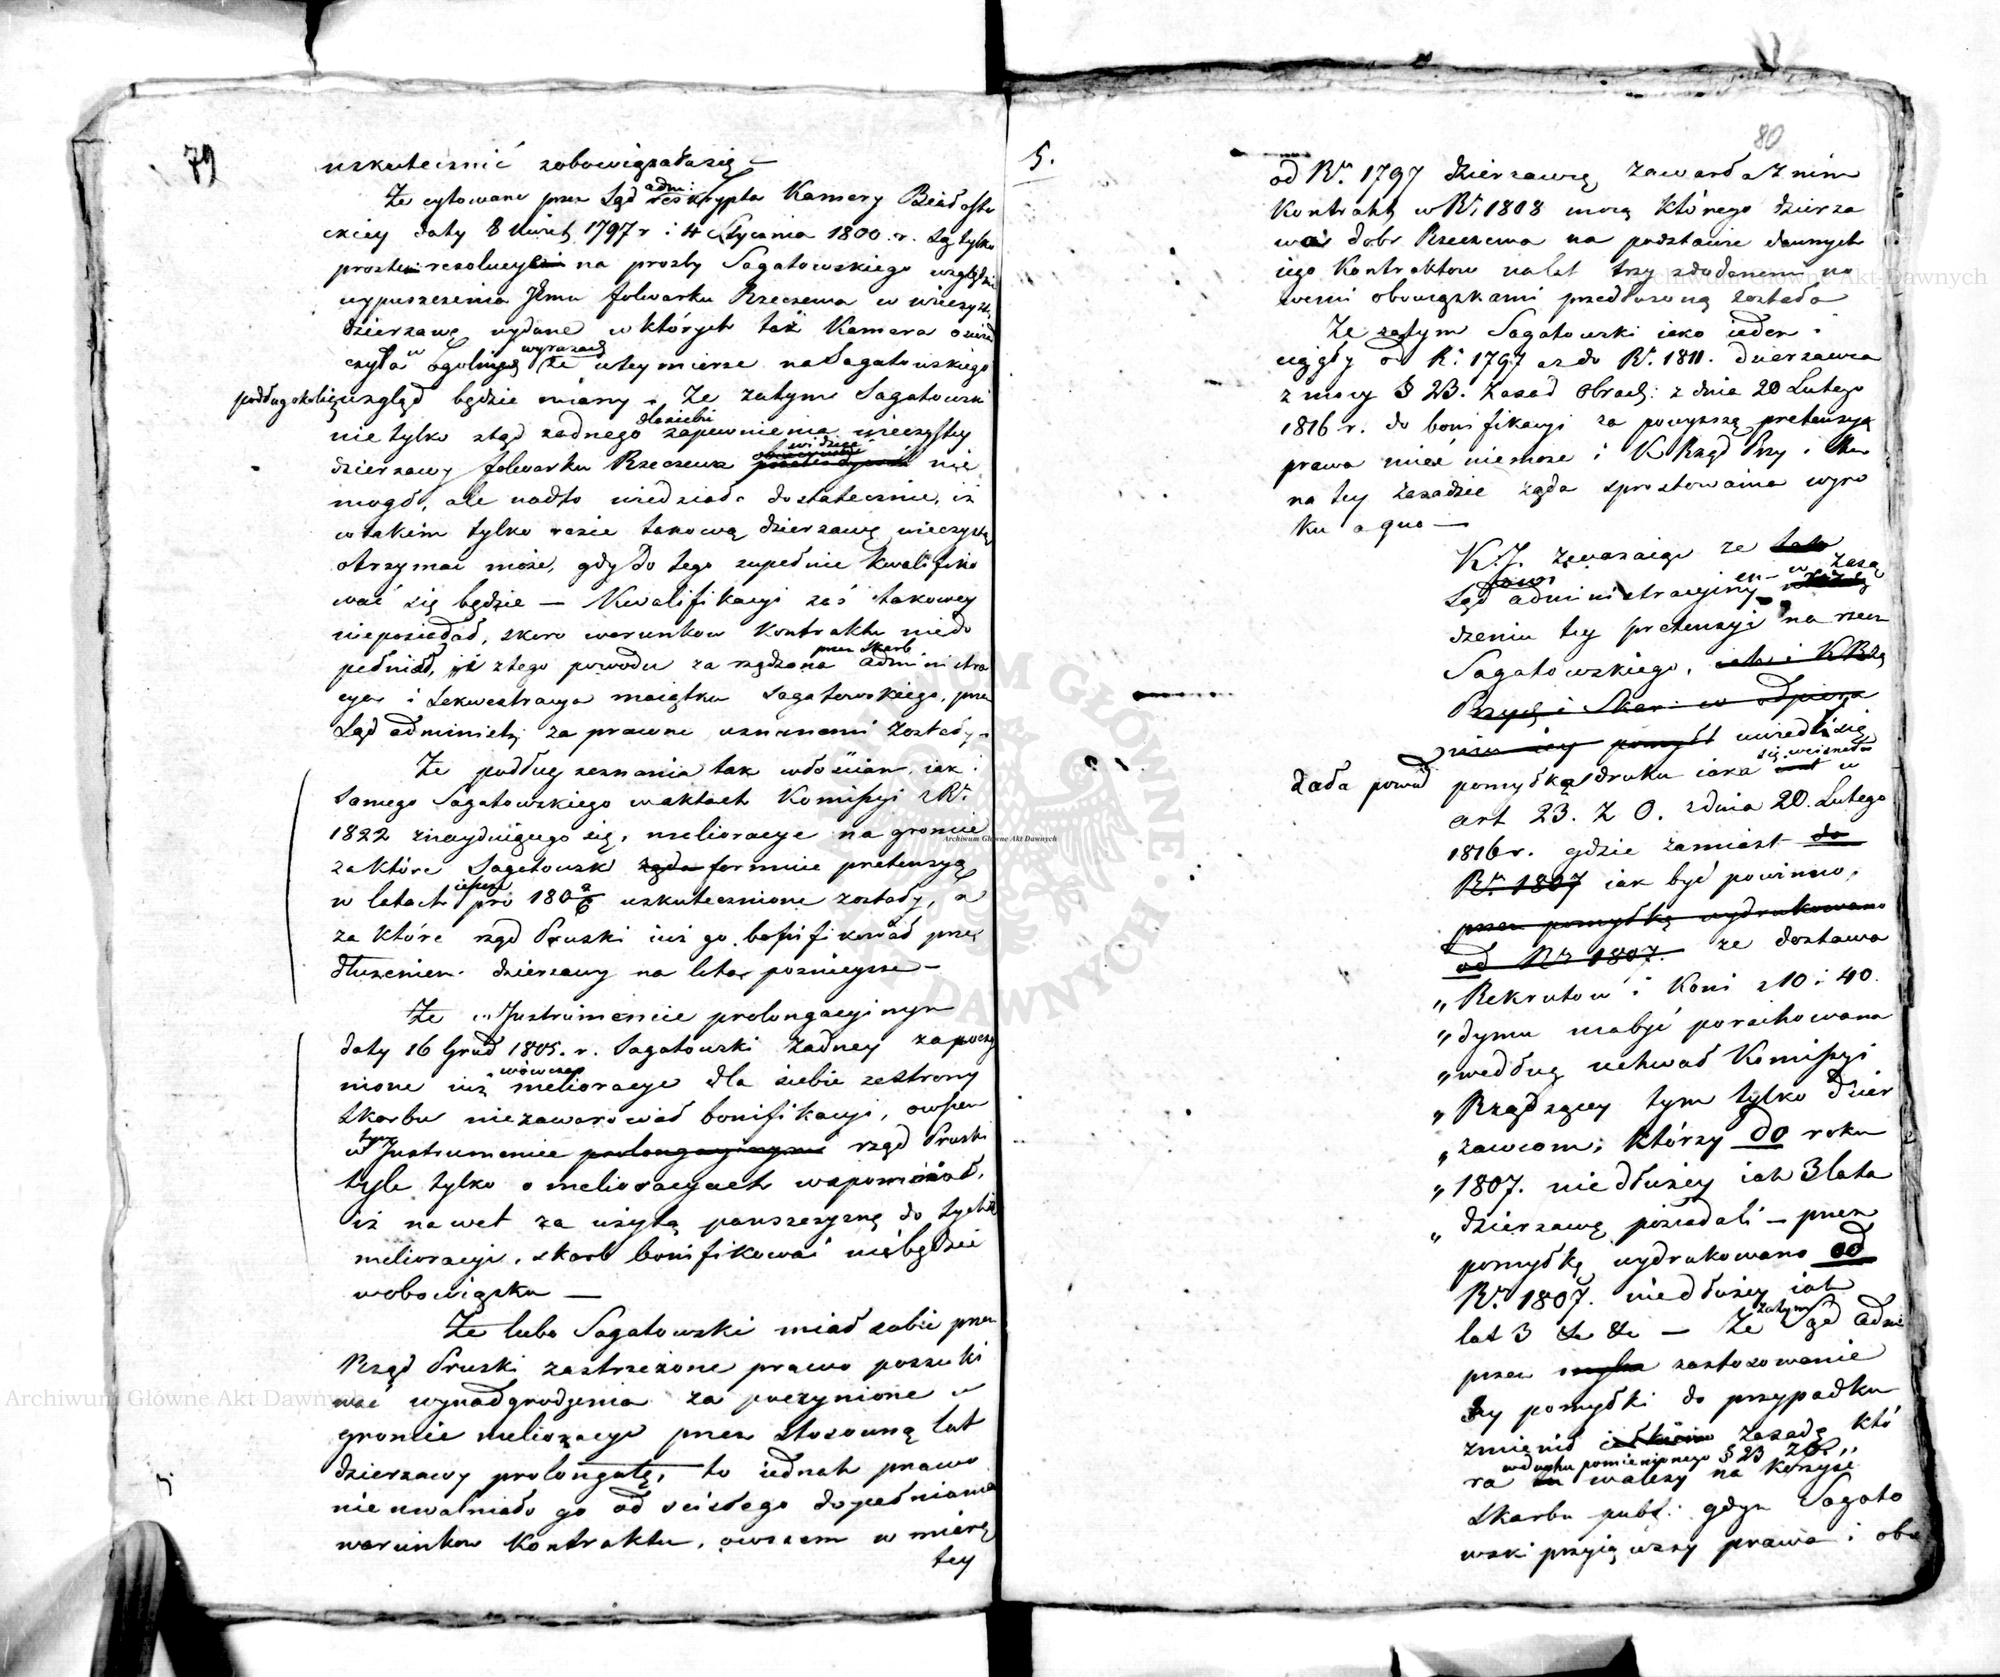 79
uskutecznić zobowiązała się —
Że cytowane przez Sąd adm: reskrypta Kamery Białosto
ckiey daty 8 1797 r i 4 Stycznia 1800 r. są tylko
proste resolucye na prośby Sagatowskiego względem
wypuszczenia Jemu folwarku Rzeczewa w wieczyst.
dzierzawę wydane w których taż Kamera oświad
czyła w ogolnych wyrazach że w tey mierze na Sagatowskiego
podług okolicz wzgląd będzie miany. Że zatym Sagatowski
nietylko ztąd żadnego dla siebie zapewnienia wieczystey
dzierzawy folwarku Rzeczewa widzieć nie
mogł, ale nadto wiedział dostatecznie, iż
w takim tylko razie takową dzierzawę wieczystą
otrzymać może, gdy do tego zupełnie kwalifiko
wać się będzie — Kwalifikacyi zaś takowey
nieposiadał, skoro warunkow kontraktu niedo
pełniał, iż z tego powodu zarządzona przez Skarb administra
cya i sekwestracya maiątku Sagatowskiego, przez
Sąd administ: za prawne uznanemi zostały —
Że podług zeznania tak włościan, iak i
samego Sagatowskiego w aktach Komissyi z R.
1822 znayduiącego się, melioracye na gruncie
za które Sagatowsk żąda formuie pretensyą
w latach pro 180 uskutecznione zostały, a
za które rząd Pruski iuż go bonifikował prze
dłużeniem dzierzawy na lata poznieysze —
Że w Instrumencie prolongacyinym
daty 16 Grud 1805. r. Sagatowski żadney za poczy
nione iuż wówczas melioracye dla siebie ze strony
Skarbu niezawarował bonifikacyi, owszem
w tym Instrumencie prolongacyinym rząd Pruski
tyle tylko o melioracyach wspomniał,
iż nawet za użytą pańszczyznę do tychże
melioracyi, skarb bonifikować niebędzie
w obowiązku —
Że lubo Sagatowski miał sobie przez
Rząd Pruski zastrzeżone prawo poszuki
wać wynadgrodzenia za poczynione w
gruncie melioracye przez stosowną lat
dzierzawy prolongatę, to iednak prawo
nie uwalniało go od ścisłego dopełniania
warunkow kontraktu, owszem w miarę
tey
5.
80
od R. 1797 dzierzawcą zawarła z nim
kontrakt w R. 1808 mocą którego dzierza
wa dobr Rzeczewa na podstawie dawnych
iego kontraktow na lat trzy z dodanemi no
wemi obowiązkami przedłużoną została
Że zatym Sagatowski iako ieden i
ciągły od R. 1797 aż do R. 1811. dzierzawca
z mocy § 23. Zasad Obrach: z dnia 20 Lutego
1816 r. do bonifikacyi za powyższą pretensyą
prawa mieć niemoże i K Rząd Przy i Skar
na tey zasadzie żąda sprostowania wyro
ku a quo —
K. J. zważaiąc że
Sąd administracyiny w zasą
dzeniu tey pretensyi na rzecz
Sagatowskiego, iak i K Rzą
Przych i Skar: w odpiera
niu iey pomylił
dała powód pomyłka druku iaka się wcisnęła w
art 23. Z O. z dnia 20. Lutego
1816 r. gdzie zamiast do
R. 1807 iak być powinno,
przez pomyłkę wydrukowano
od R. 1807. że dostawa
„ Rekrutow i Koni z 10 i 40.
„ dymu ma być porachowana
„ według uchwał Komissyi
„ Rządzącey tym tylko dzier
„ zawcom, którzy do roku
„ 1807. niedłużey iak 3 lata
„ dzierzawę posiadali — przez
pomyłkę wydrukowano od
R. 1807. niedłużey iak
lat 3 &c &c — Że zatym Sąd adm
przez mylne zastosowanie
tey pomyłki do przypadku
zmienił całkiem zasadę któ
ra w duchu pomienionego § 23 ZO.
walczy na korzyść
Skarbu publ: gdyż Sagato
wski przyiąwszy prawa i obo
Archiwum Główne Akt Dawnych
Archiwum Główne Akt Dawnych
Archiwum Główne Akt Dawnych